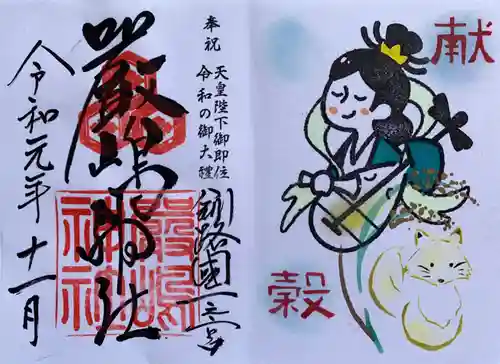 献
穀
奉祝 天皇陛下御即位
令和の御大禮
釧路國一之宮
厳島神社
嚴嶋神社
令和元年十一月